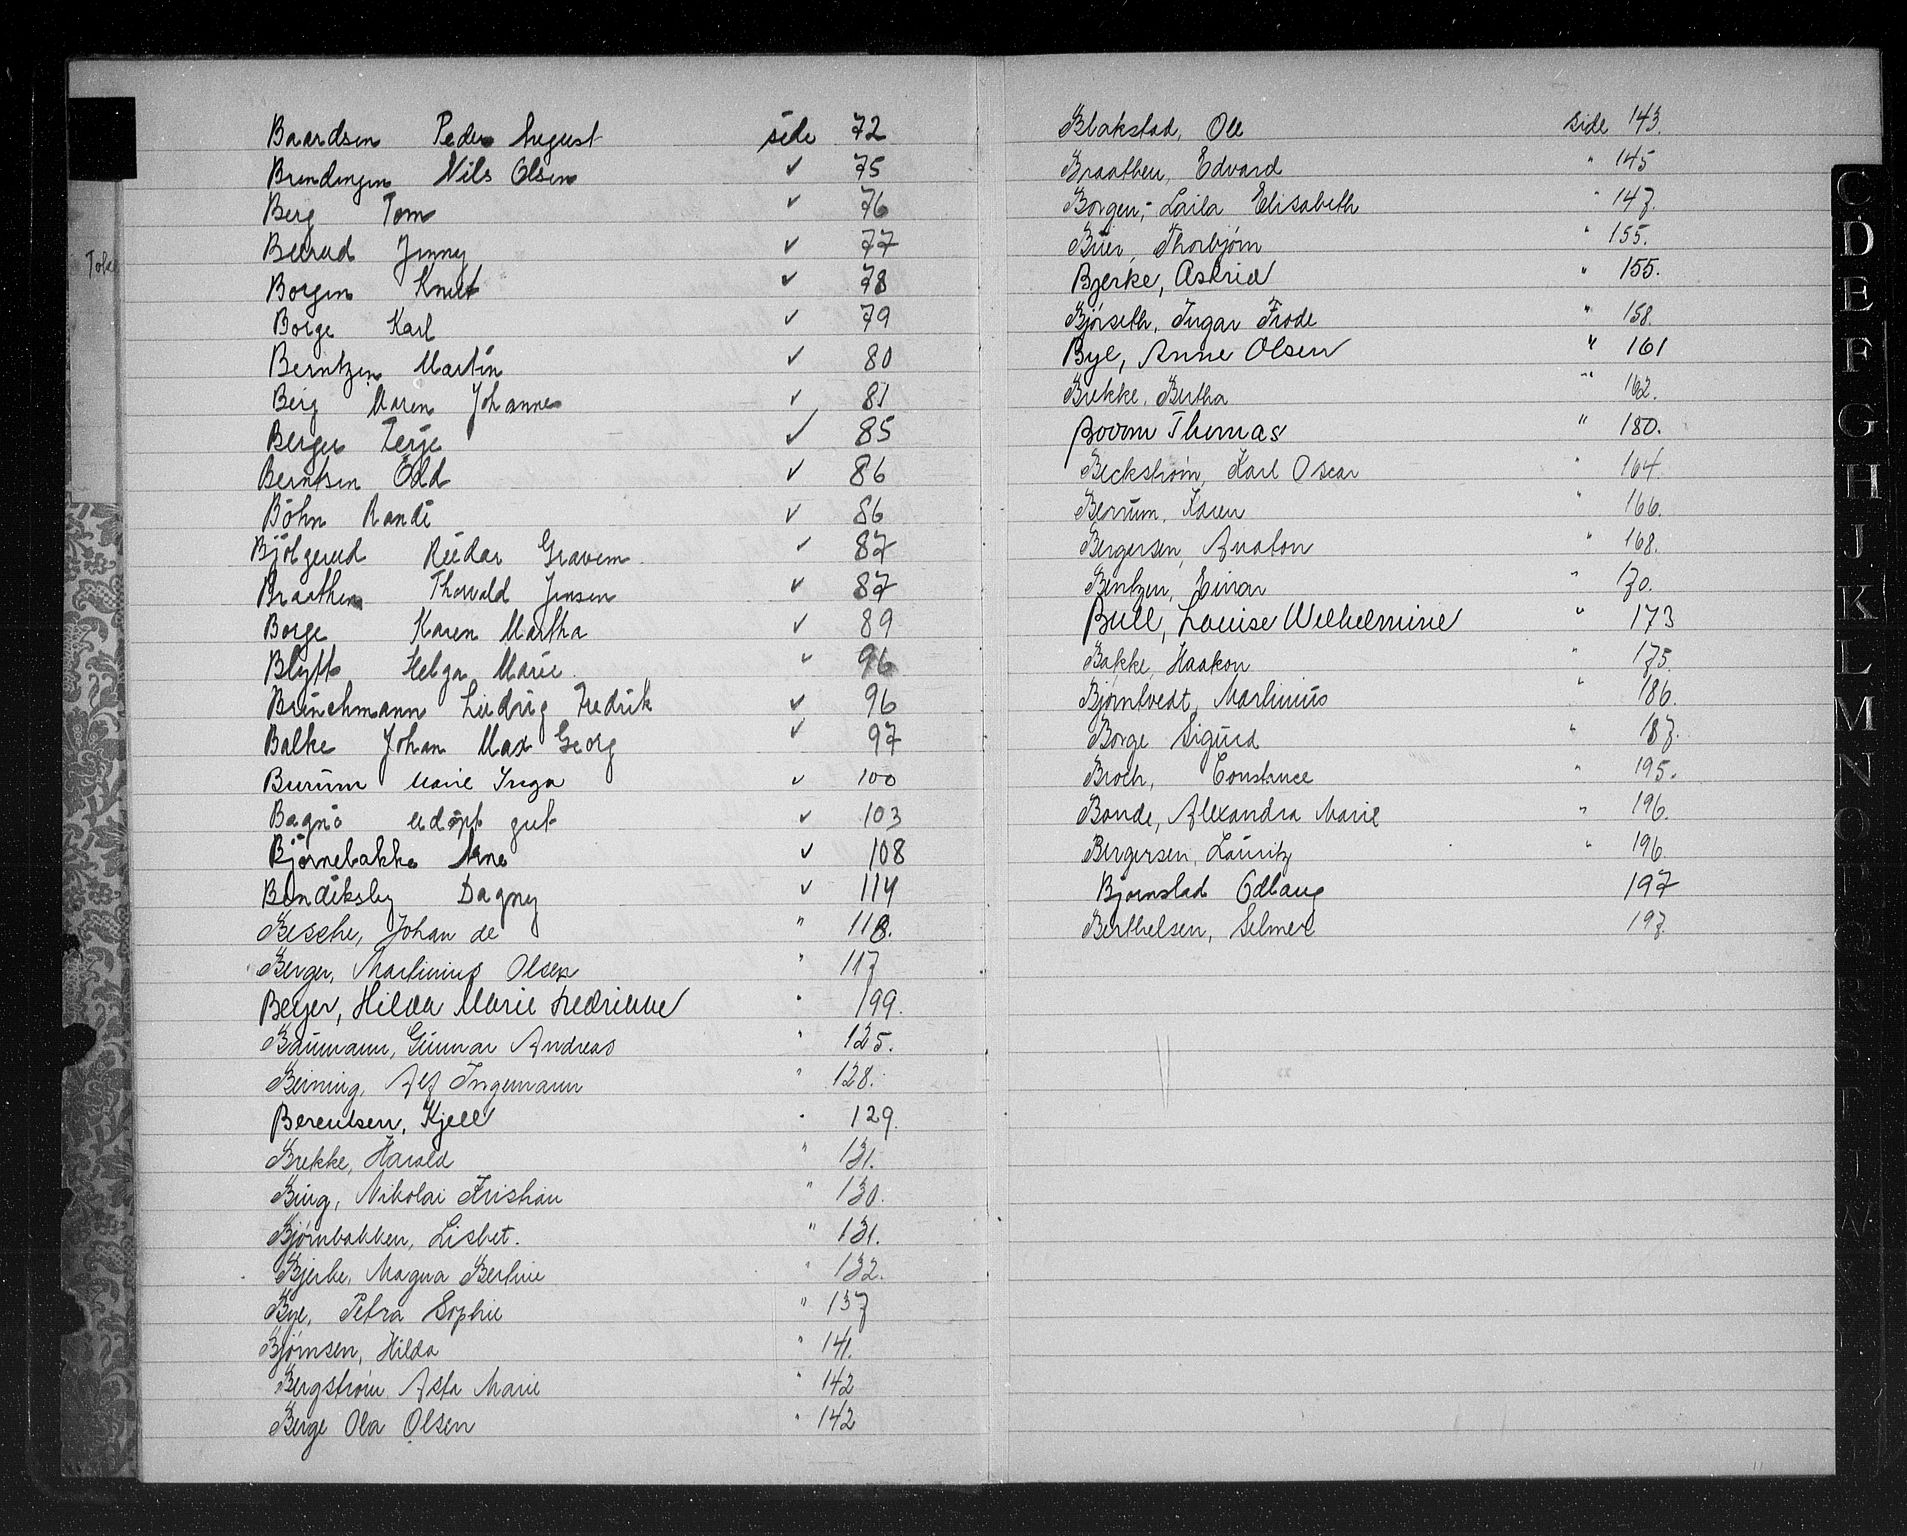 Baardsen Peder August side 72
Brendingen Nils Olsen ✓ 75
Berg Tom ✓ 76
Beerud Jenny ✓ 77
Borgen Knut ✓ 78
Borge Karl ✓ 79
Berntzen Martin ✓ 80
Berg Maren Johanne ✓ 81
Berger Terje ✓ 85
Berntsen Odd ✓ 86
Bøhn Randi ✓ 86
Bjølgerud Reidar Gravem ✓ 87
Braathen Thorvald Jensen ✓ 87
Borge Karen Martha ✓ 89
Blytt Helga Marie ✓ 96
Brinchmann Ludvig Fredrik ✓ 96
Balke Johan Max Georg ✓ 97
Burum Marie Inga ✓ 100
Bagnø adopt gut ✓ 103
Bjørnebakke Arne ✓ 108
Bendiksby Dagny ✓ 114
Besche, Johan de " 118.
Berger, Martinius Olsen " 117
Beyer, Hilda Marie Fredrikke " 199.
Baumann, Gunnar Andreas " 125.
Beining, Alf Ingemann " 128.
Berentsen, Kjell " 129.
Brekke, Harald " 131.
Bing, Nikolai Kristian " 130.
Bjørnbakken, Lisbet. " 131.
Bjerke, Magna Bertine " 132.
Bye, Petra Sophie " 137
Bjørnsen, Hilda " 141.
Bergstrøm Asta Marie " 142
Berge Ola Olsen " 142
Blakstad, Ole side 143.
Braathen, Edvard " 145
Borgen, Laila Elisabeth " 147.
Buer, Thorbjørn " 155.
Bjerke, Astrid " 155.
Bjørseth, Ingar Frode " 158.
Bye, Anne Olsen " 161
Brekke, Bertha " 162.
Bovom Thomas " 180.
Beckstrøm, Karl Oscar " 164.
Berrum, Karen " 166.
Bergersen, Anaton " 168.
Bentzen, Einar " 170.
Bull, Louise Wilhelmine " 173
Bakke, Haakon " 175.
Bjørntvedt, Martinius " 186.
Borge Sigurd " 187.
Broch, Constance " 195.
Bonde, Alexandra Marie " 196.
Bergersen, Lauritz " 196.
Bjørnstad Odlaug 197
Berthelsen, Selmer 197.
C
D
E
F
G
H
J
K
L
M
N
O